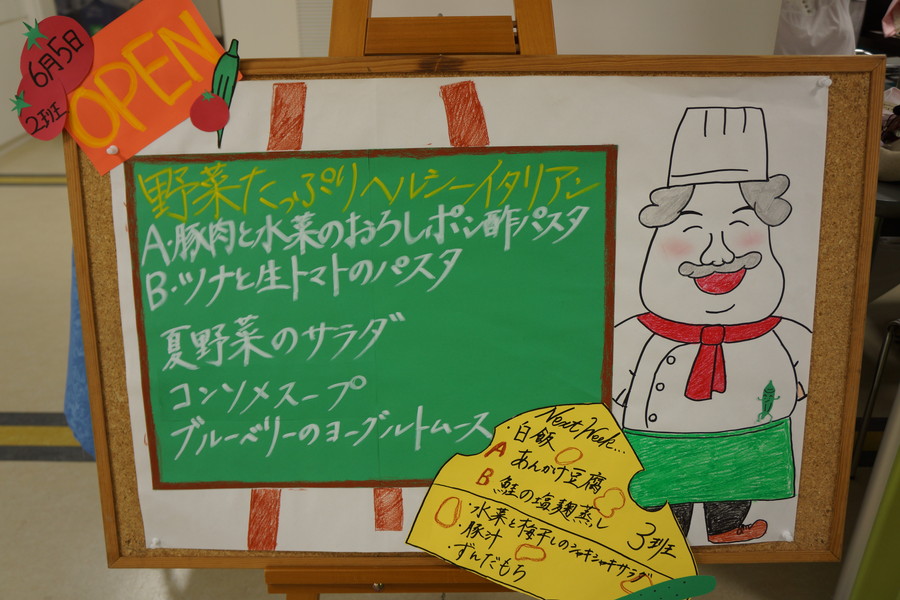 6月5日
2班
OPEN
野菜たっぷりヘルシーイタリアン
A.豚肉と水菜のおろしポン酢パスタ
B.ツナと生トマトのパスタ
夏野菜のサラダ
コンソメスープ
ブルーベリーのヨーグルトムース
Next Week...
・白飯
A あんかけ豆腐
B 鮭の塩麹蒸し
・水菜と梅干しのシャキシャキサラダ
・豚汁
・ずんだもち
3班